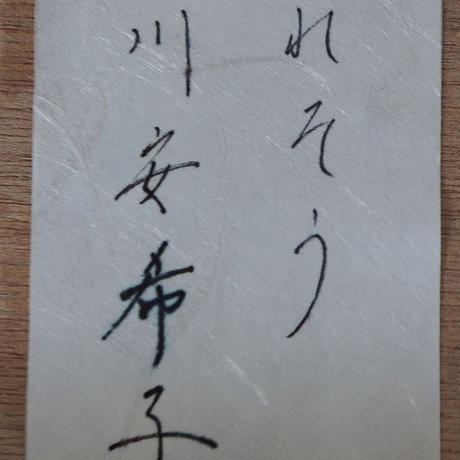 れそう
川安希子